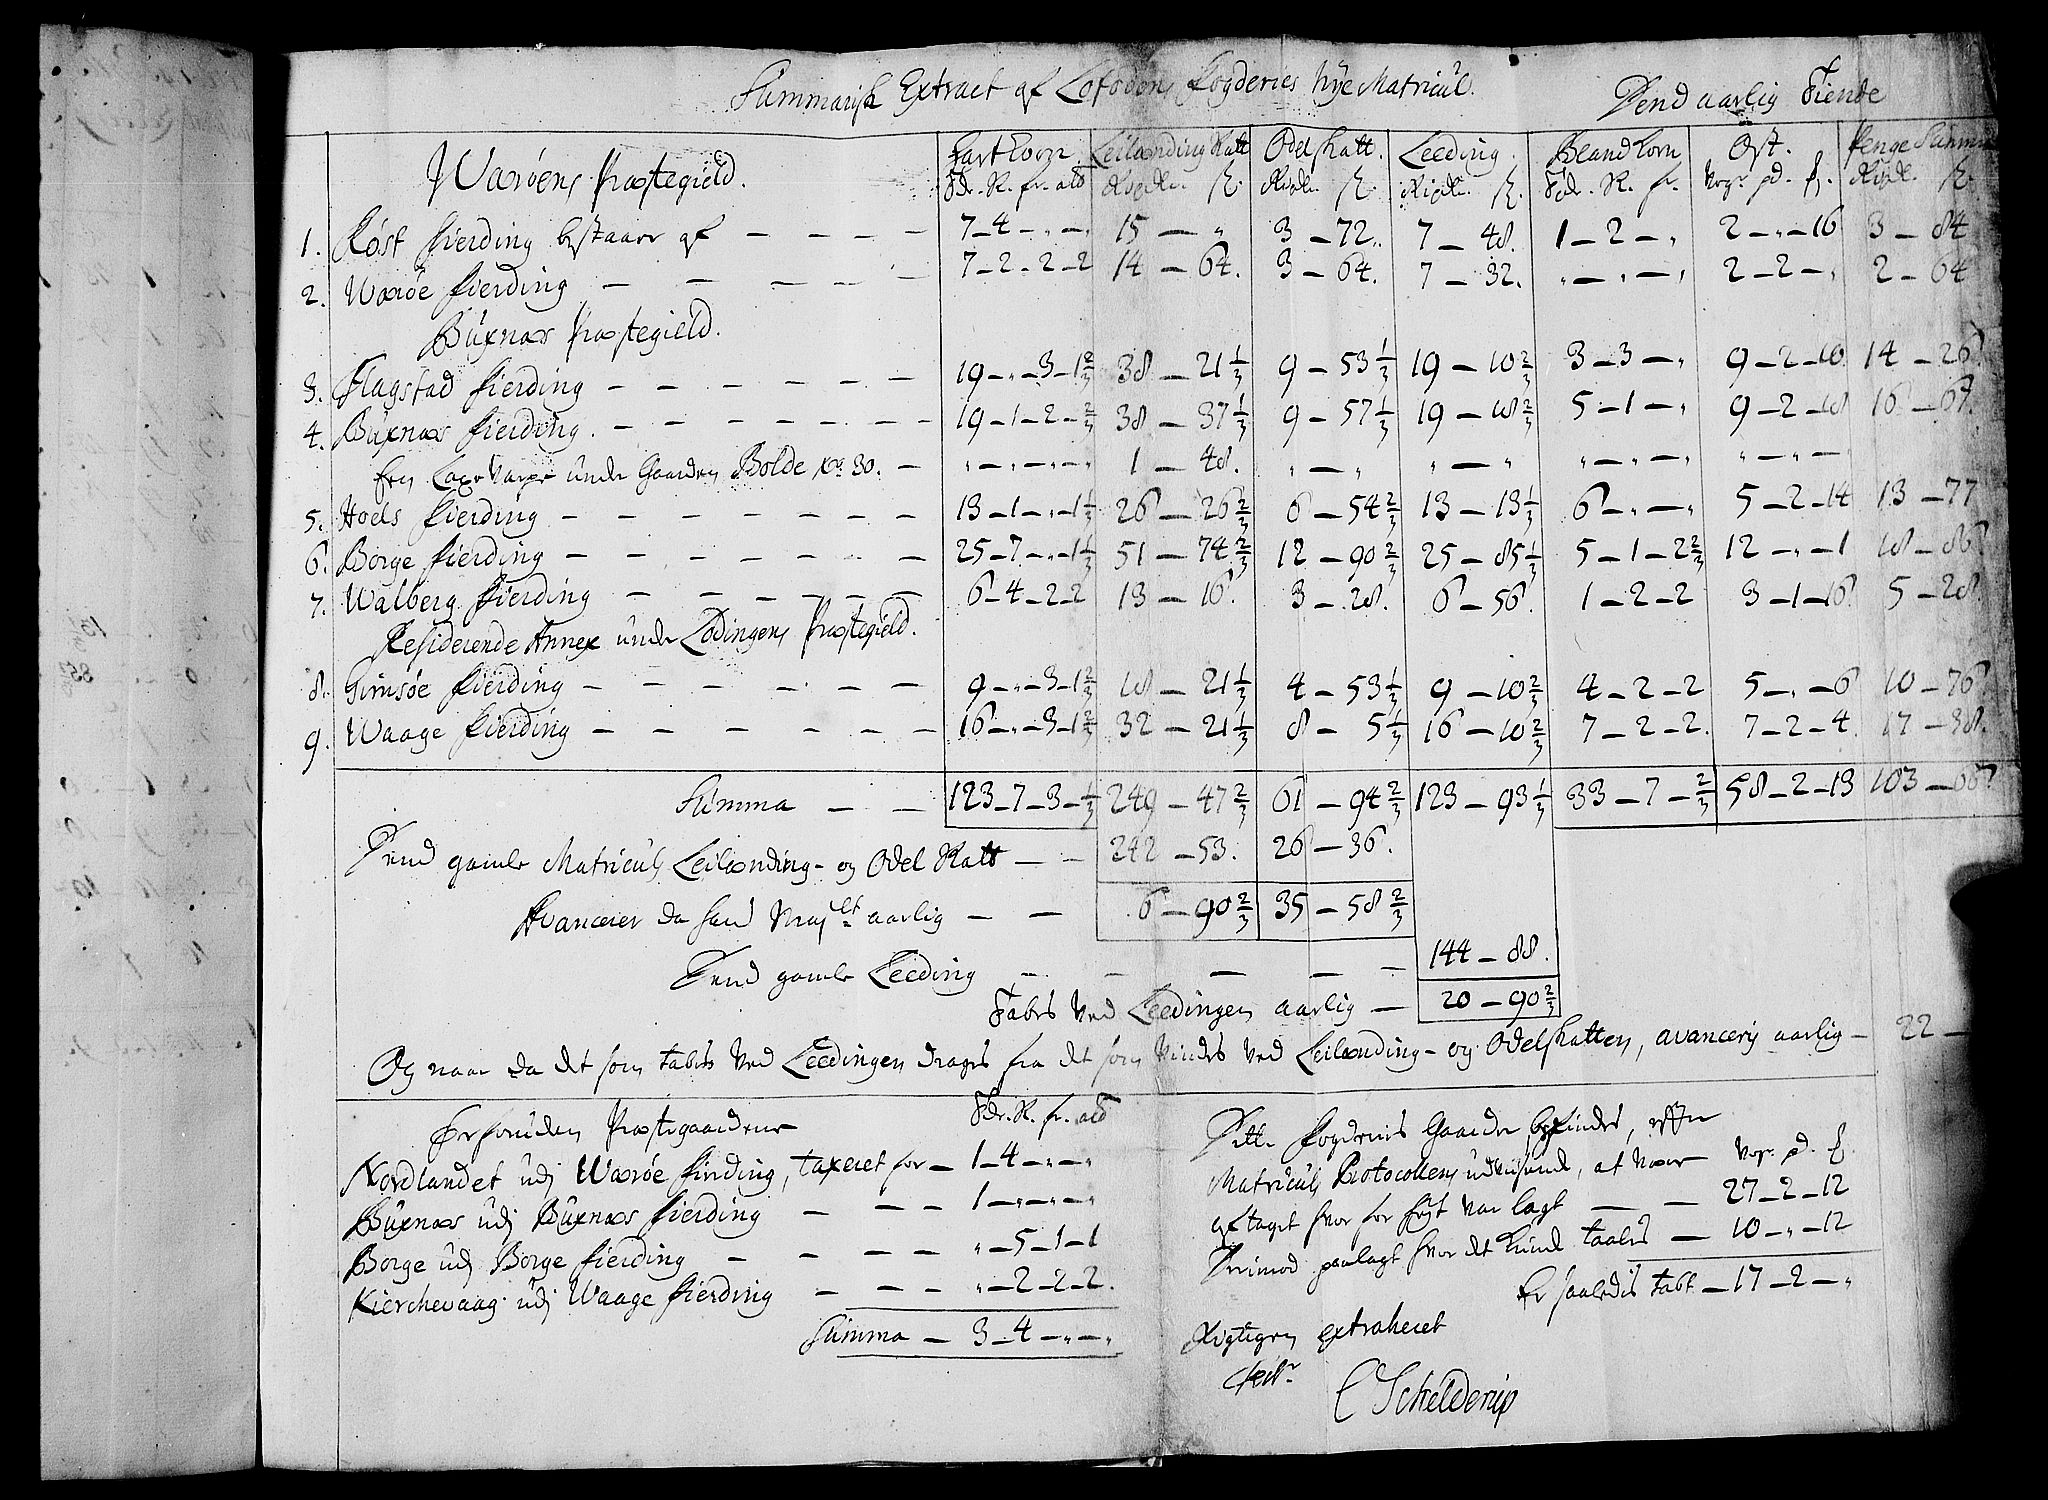 Summarisk Extract af Lofodens Fogderies Nye Matricul. Dend aarlig Tiende
Waröens Præstegield. Hart Korn Leilænding Skatt Odel Skatt. Leeding. Bland Korn Ost. Penge Summa
Tdr. S. fr. alb Rixdlr. ß. Rixdlr. ß. Rixdlr. ß. Tdr. S. fr. Vogr. pd. ℔. Rixdlr. ß.
1. Röst fierding bestaaer af — — — — 7–4–„–„ 15 – „ 3 – 72. 7 – 48. 1–2–„ 2–„–16 3 – 84
2. Waröe fierding — — — — — 7–2–2–2 14 – 64. 3 – 64. 7 – 32. „–„–„ 2–2–„ 2 – 64
Buxnæs Præstegield.
3. Flagstad fierding — — — — — — 19–„–3–1 2/3 38 – 21 1/3 9 – 53 1/3 19 – 10 2/3 3–3–„ 9–2–10 14 – 26
4. Buxnæs fierding. — — — — — — 19–1–2– 2/3 38 – 37 1/3 9 – 57 1/3 19 – 18 2/3 5–1–„ 9–2–18 16 – 67.
Een Laxe Varpe under Gaarden Bolde No. 30. — „–„–„–„ 1 – 48. „ – „ „ – „ „–„–„ „–„–
5. Hoels fierding — — — — — — — 13–1–„–1 1/3 26 – 26 2/3 6 – 54 2/3 13 – 13 1/3 6–„–„ 5–2–14 13 – 77
6. Borge fierding — — — — — — — 25–7–„–1 1/3 51 – 74 2/3 12 – 90 2/3 25 – 85 1/3 5–1–2 2/3 12–„–1 18 – 86
7. Walberg fierding — — — — — — 6–4–2–2 13 – 16. 3 – 28. 6 – 56. 1–2–2 3–1–16 5 – 28.
Residerende Annex under Lodingens Præstegield.
8. Gimsöe fierding — — — — — — 9–„–3–1 2/3 18 – 21 1/3 4 – 53 1/3 9 – 10 2/3 4–2–2 5–„–6 10 – 76
9. Waage fierding — — — — — — 16–„–3–1 2/3 32 – 21 1/3 8 – 5 1/3 16 – 10 2/3 7–2–2. 7–2–4. 17 – 38.
Summa — — 123–7–3– 1/3 249 – 47 2/3 61 – 94 2/3 123 – 93 1/3 33–7– 2/3 58–2–13 103 –
Dend gamle Matriculs Leilænding- og Odel Skatt — — 242 – 53. 26 – 36.
Avancerer da hand Majlt aarlig — — 6 – 90 2/3 35 – 58 2/3
Dend gamle Leeding — — — — — 144 – 88.
Tabes ved Leedingen aarlig — 20 – 90 2/3
Og naar da det som tabes ved Leedingen drages fra det som vindes ved Leilænding- og Odelskatten, avanceris aarlig — 22 —
Forforuden Præstegaardene Tdr. S. fr. alb
Nordlandet udj Waröe fierding, taxeret for — 1–4–„–„
Buxnæs udj Buxnæs fierding — — — 1–„–„–„
Borge udj Borge fierding — — — — „–5–1–1
Kierchevaag udj Waage fierding — — — „–2–2–2.
Summa — 3–4–„–„
Dette Fogderies Gaarder befindes, effter
Matriculs Protocollens udviisende, at være Vogr. pd. ℔.
aftaget hvor for høyt var lagt — — 27–2–12
Derimod paalagt hvor det kunde taales — 10–„–12
Er saaledis tabt — 17–2–„
Rigtigen extraheret
C Schelderup